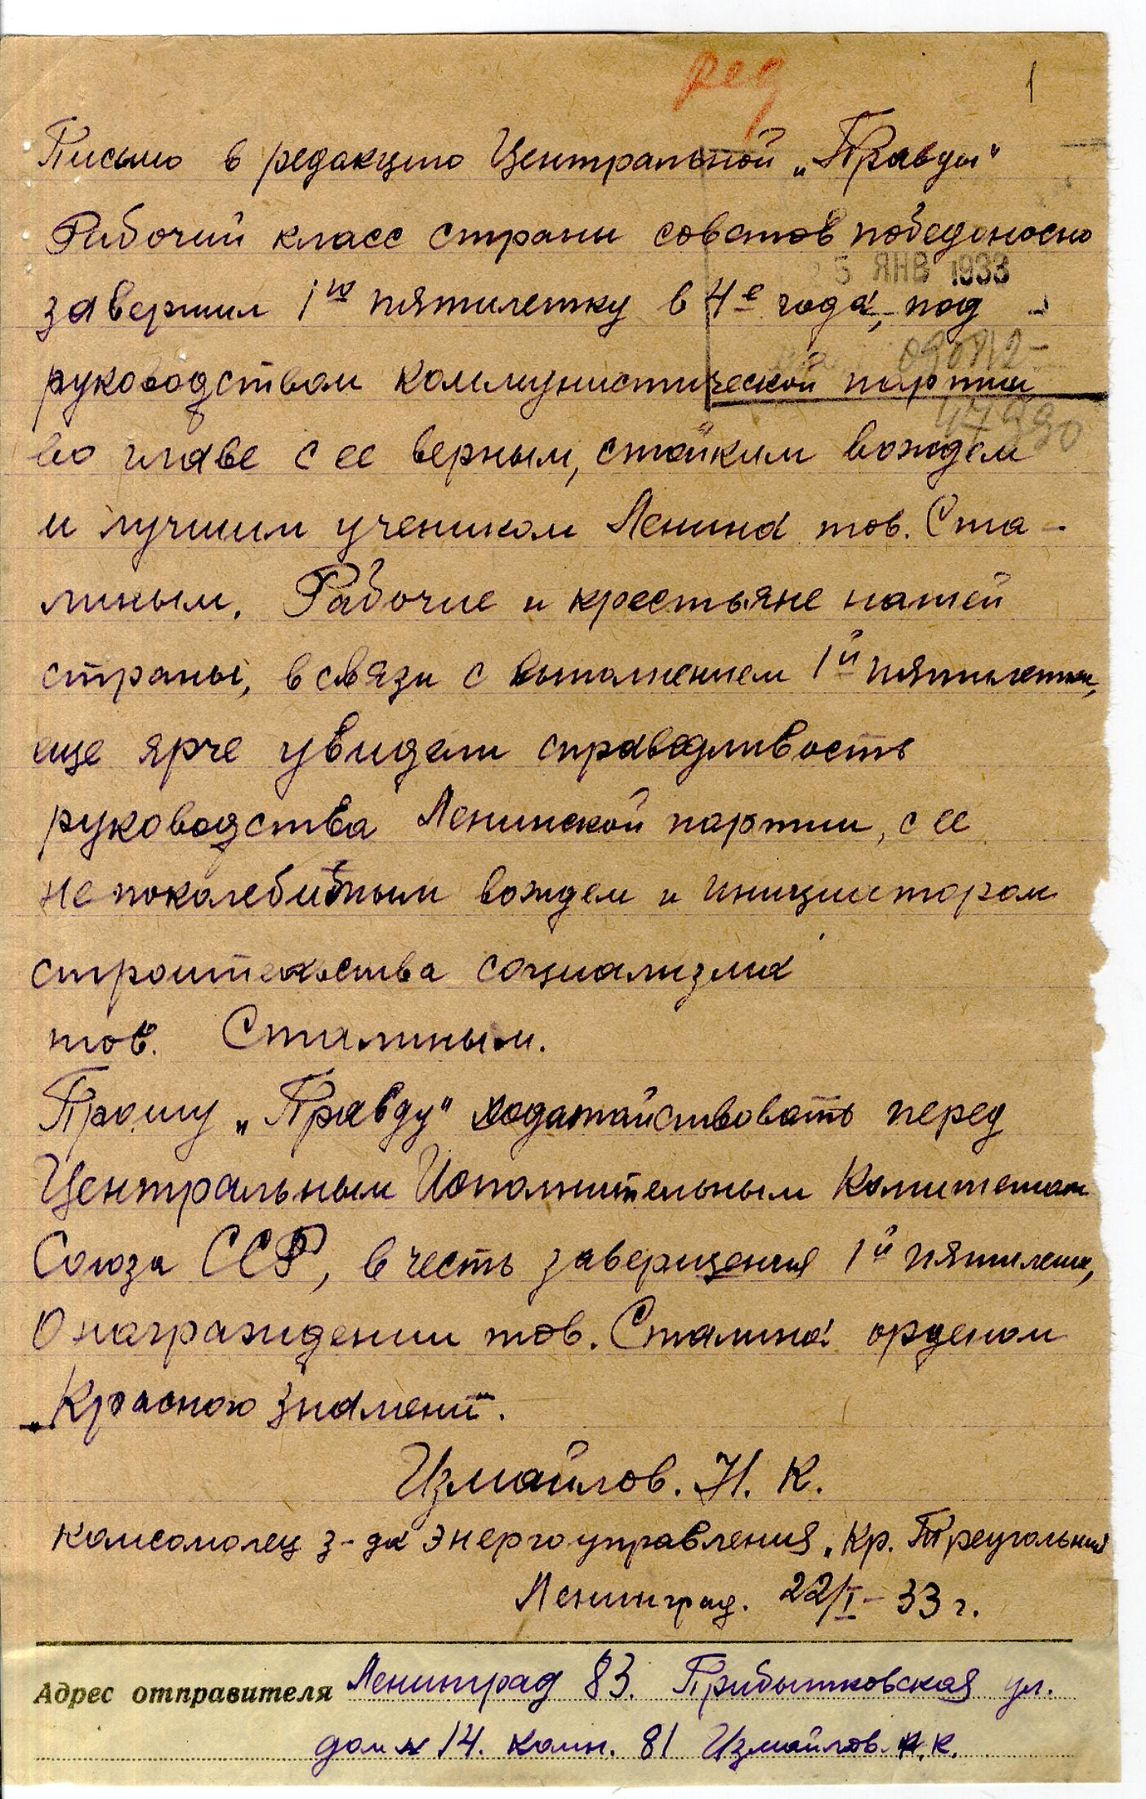 ред
1
Письмо в редакцию Центральной „Правды"
Рабочий класс страны советов победоносно
25 ЯНВ 1933
завершил 1ую пятилетку в 4е года, под
руководством коммунистической партии
во главе с ее верным, стойким вождем
и лучшим учеником Ленина тов. Ста-
линым. Рабочие и крестьяне нашей
страны, в связи с выполнением 1й пятилетки,
еще ярче увидели справедливость
руководства Ленинской партии, с ее
непоколебимым вождем и инициатором
строительства социализма
тов. Сталиным.
Прошу „Правду" ходатайствовать перед
Центральным Исполнительным Комитетом
Союза ССР, в честь завершения 1й пятилетки,
О награждении тов. Сталина орденом
„Красного знамени".
Измайлов. Н. К.
комсомолец з-да энергоуправления „Кр. Треугольник
Ленинград. 22/I-33 г.
Адрес отправителя Ленинград 83. Прибытковская ул.
дом № 14. комн. 81 Измайлов Н. К.